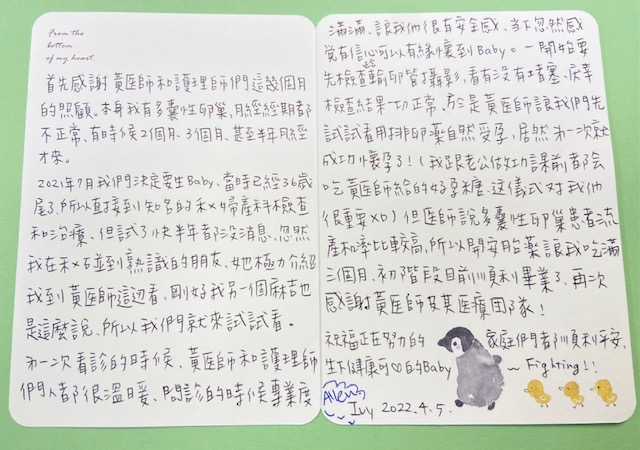 From the
bottom
of my heart.
首先感謝黃醫師和護理師們這幾個月
的照顧。本身我有多囊性卵巢,月經經期都
不正常,有時候2個月、3個月、甚至半年月經
才來。
2021年7月我們決定要生Baby,當時已經36歲
尾了,所以直接到知名的禾×婦產科檢查
和治療,但試了快半年都沒消息,忽然
我在禾×碰到熟識的朋友,她極力介紹
我到黃醫師這边看,剛好我另一個麻吉也
是這麼說,所以我們就來試試看。
第一次看診的時候,黃醫師和護理師
們人都很溫暖、問診的時候專業度
滿滿、讓我們很有安全感,當下忽然感
覺有信心可以有緣懷到Baby。一開始要
先檢查輸卵管攝影,看有沒有堵塞,庆幸
檢查結果一切正常,於是黃醫師讓我們先
試試看用排卵藥自然受孕,居然第一次就
成功懷孕了!(我跟老公做功課前都會
吃黃醫師給的好孕糖,这儀式对我們
很重要XD)但医師說多囊性卵巢患者流
產机率比較高,所以開安胎藥讓我吃滿
三個月,初階段目前順利畢業了,再次
感謝黃醫師及其医療团隊!
祝福正在努力的家庭們都順利平安,
生下健康可♡的Baby ~ Fighting!!
Ivy 2022.4.5.